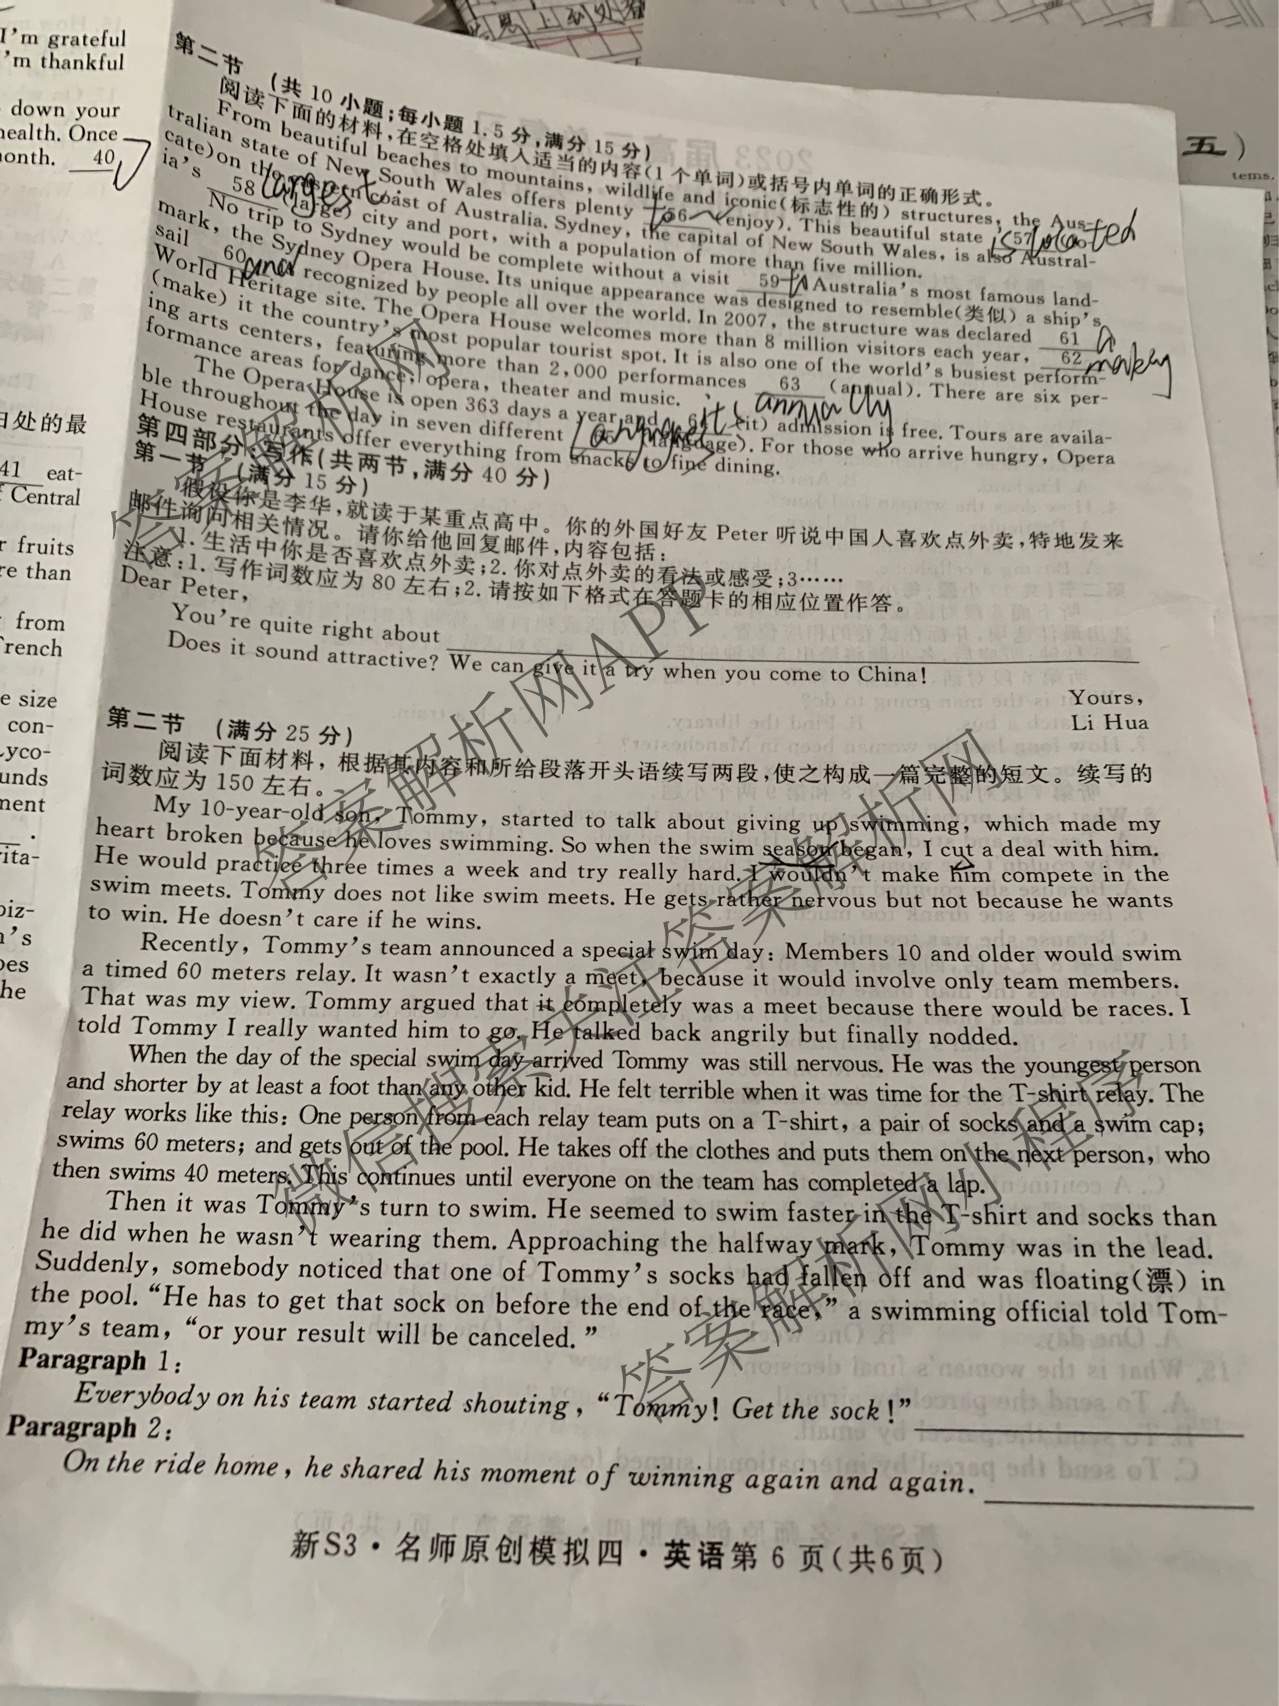 I'm grateful
'm thankful
down your
health. Once
month. 40
日处的最
41 eat-
Central
r fruits
re than
from
French
e size
con-
Lyco-
unds
ment
rita-
biz-
n's
oes
he
五）
tems.
第二节 （共 10 小题；每小题 1.5 分，满分 15 分）
阅读下面的材料，在空格处填入适当的内容（1 个单词）或括号内单词的正确形式。
From beautiful beaches to mountains, wildlife and iconic(标志性的) structures, the Aus-
tralian state of New South Wales offers plenty 56 (enjoy). This beautiful state 57
cate)on the eastern coast of Australia. Sydney, the capital of New South Wales, is also Austral-
ia's 58 (large) city and port, with a population of more than five million.
to
is located
largest
No trip to Sydney would be complete without a visit 59 Australia's most famous land-
mark, the Sydney Opera House. Its unique appearance was designed to resemble(类似) a ship's
sail 60 recognized by people all over the world. In 2007, the structure was declared 61
World Heritage site. The Opera House welcomes more than 8 million visitors each year, 62
(make) it the country's most popular tourist spot. It is also one of the world's busiest perform-
ing arts centers, featuring more than 2,000 performances 63 (annual). There are six per-
formance areas for dance, opera, theater and music.
to
and
a
making
annually
The Opera House is open 363 days a year and 64 (it) admission is free. Tours are availa-
ble throughout the day in seven different 65 (language). For those who arrive hungry, Opera
House restaurants offer everything from snacks to fine dining.
its
languages
第四部分：写作（共两节，满分 40 分）
第一节 （满分 15 分）
假设你是李华，就读于某重点高中。你的外国好友 Peter 听说中国人喜欢点外卖，特地发来
邮件询问相关情况。请你给他回复邮件，内容包括：
1. 生活中你是否喜欢点外卖；2. 你对点外卖的看法或感受；3……
注意：1. 写作词数应为 80 左右；2. 请按如下格式在答题卡的相应位置作答。
Dear Peter,
You're quite right about
Does it sound attractive? We can give it a try when you come to China!
Yours,
Li Hua
第二节 （满分 25 分）
阅读下面材料，根据其内容和所给段落开头语续写两段，使之构成一篇完整的短文。续写的
词数应为 150 左右。
My 10-year-old son, Tommy, started to talk about giving up swimming, which made my
heart broken because he loves swimming. So when the swim season began, I cut a deal with him.
He would practice three times a week and try really hard. I wouldn't make him compete in the
swim meets. Tommy does not like swim meets. He gets rather nervous but not because he wants
to win. He doesn't care if he wins.
Recently, Tommy's team announced a special swim day: Members 10 and older would swim
a timed 60 meters relay. It wasn't exactly a meet, because it would involve only team members.
That was my view. Tommy argued that it completely was a meet because there would be races. I
told Tommy I really wanted him to go. He talked back angrily but finally nodded.
When the day of the special swim day arrived Tommy was still nervous. He was the youngest person
and shorter by at least a foot than any other kid. He felt terrible when it was time for the T-shirt relay. The
relay works like this: One person from each relay team puts on a T-shirt, a pair of socks and a swim cap;
swims 60 meters; and gets out of the pool. He takes off the clothes and puts them on the next person, who
then swims 40 meters. This continues until everyone on the team has completed a lap.
Then it was Tommy's turn to swim. He seemed to swim faster in the T-shirt and socks than
he did when he wasn't wearing them. Approaching the halfway mark, Tommy was in the lead.
Suddenly, somebody noticed that one of Tommy's socks had fallen off and was floating(漂) in
the pool. “He has to get that sock on before the end of the race,” a swimming official told Tom-
my's team, “or your result will be canceled.”
Paragraph 1:
Everybody on his team started shouting, “Tommy! Get the sock!”
Paragraph 2:
On the ride home, he shared his moment of winning again and again.
新S3·名师原创模拟四·英语第 6 页（共6页）
答案解析网
答案解析网APP
微信搜索关注答案解析网
答案解析网小程序